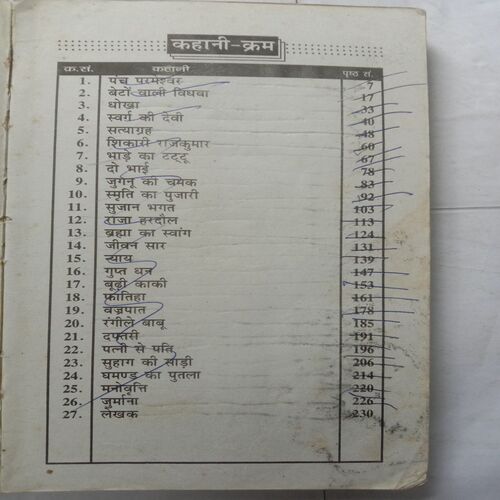 कहानी-क्रम
क.सं. कहानी पृष्ठ सं.
1. पंच परमेश्वर 7
2. बेटों वाली विधवा 17
3. धोखा 33
4. स्वर्ग की देवी 40
5. सत्याग्रह 48
6. शिकारी राजकुमार 60
7. भाड़े का टट्टू 67
8. दो भाई 78
9. जुगनू की चमक 83
10. स्मृति का पुजारी 92
11. सुजान भगत 103
12. राजा हरदौल 113
13. ब्रह्मा का स्वांग 124
14. जीवन सार 131
15. न्याय 139
16. गुप्त धन 147
17. बूढ़ी काकी 153
18. फ़ातिहा 161
19. वज्रपात 178
20. रंगीले बाबू 185
21. दफ्तरी 191
22. पत्नी से पति 196
23. सुहाग की साड़ी 206
24. घमण्ड का पुतला 214
25. मनोवृत्ति 220
26. जुर्माना 226
27. लेखक 230